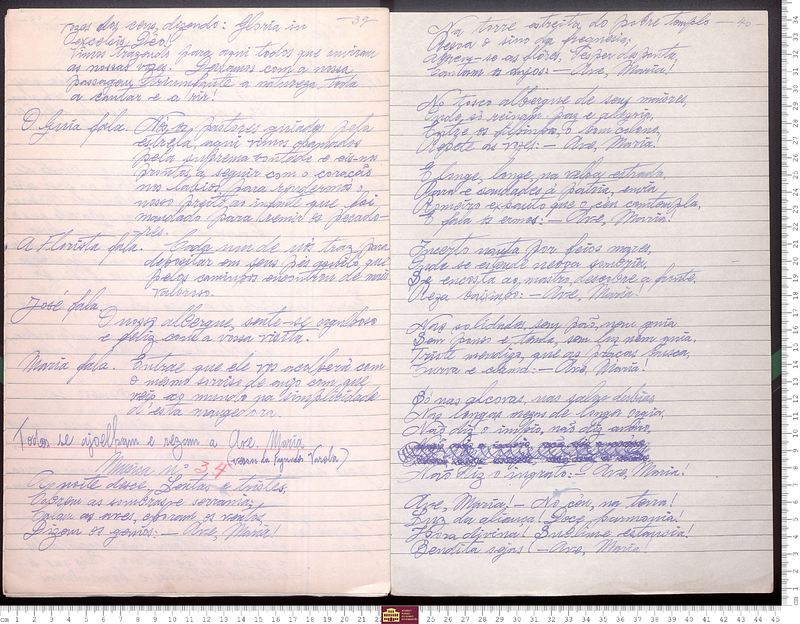 — 39 —
dos céus, dizendo: Gloria in
excelcis Deo!
Vimos trazendo para aqui todos que ouviram
as nossas vozes! com a nossa
passagem triumfante a natureza toda
a cantar e a rir!
O Guia fala. Nós, os pastores guiados pela
estrela, aqui vimos chamados
pela suprema vontade e eis-nos
prontos a seguir com o coração
nos labios, para rendermos o
nosso preito ao infante que foi
mandado para remir os pecado-
res.
A Florista fala. Cada um de nós traz para
depositar em seus pés aquilo que
pelos caminhos encontrou de mais
valioso.
José fala. O nosso albergue, sente-se orgulhoso
e feliz com a vossa visita.
Maria fala. Entrae que ele vos acolherá com
o mesmo sorriso de anjo com que
veio ao mundo na simplicidade
d'esta mangedora.
Todos se ajoelham e rezam a Ave Maria
(versos de Fagundes Varela)
Musica nº 34
A noite desce. Lentas e tristes,
Cobrem as sombras a serrania,
Calam as aves, choram os ventos,
Dizem os genios: — Ave, Maria!
— 40 —
Na torre estreita do pobre templo
Ressa o sino da freguesia,
Abrem-se as flores, Vesper desponta,
Cantam os anjos: — Ave, Maria!
No tosco albergue de seus maiores,
Onde só reinam paz e alegria,
Entre os filhinhos, o bom colono,
Repete as vozes: — Ave, Maria!
E longe, longe, na velha estrada,
Para e saudades á patria envia
Romeiro exausto que o céu contempla,
E fala os ermos: — Ave, Maria!
Incerto nauta por feios mares,
Onde se estende nevoa sombria,
Se encosta ao mastro, descobre a fronte,
Reza baixinho: — Ave, Maria!
Nas soledades, sem pão, nem guia
Sem pouso e tenda, sem luz nem guia,
Triste mendigo, que as praças busca,
Curva e clama: — Ave, Maria!
Só nas alcovas, nas salas dubias
Nas longas mezas de longa orgia,
Não diz o impio, não diz o avaro,
Não diz o ingrato: — Ave, Maria!
Ave, Maria! — No céu, na terra!
Luz da aliança! Doce harmonia!
Hora divina! Sublime estancia!
Bendita sejas! — Ave, Maria!